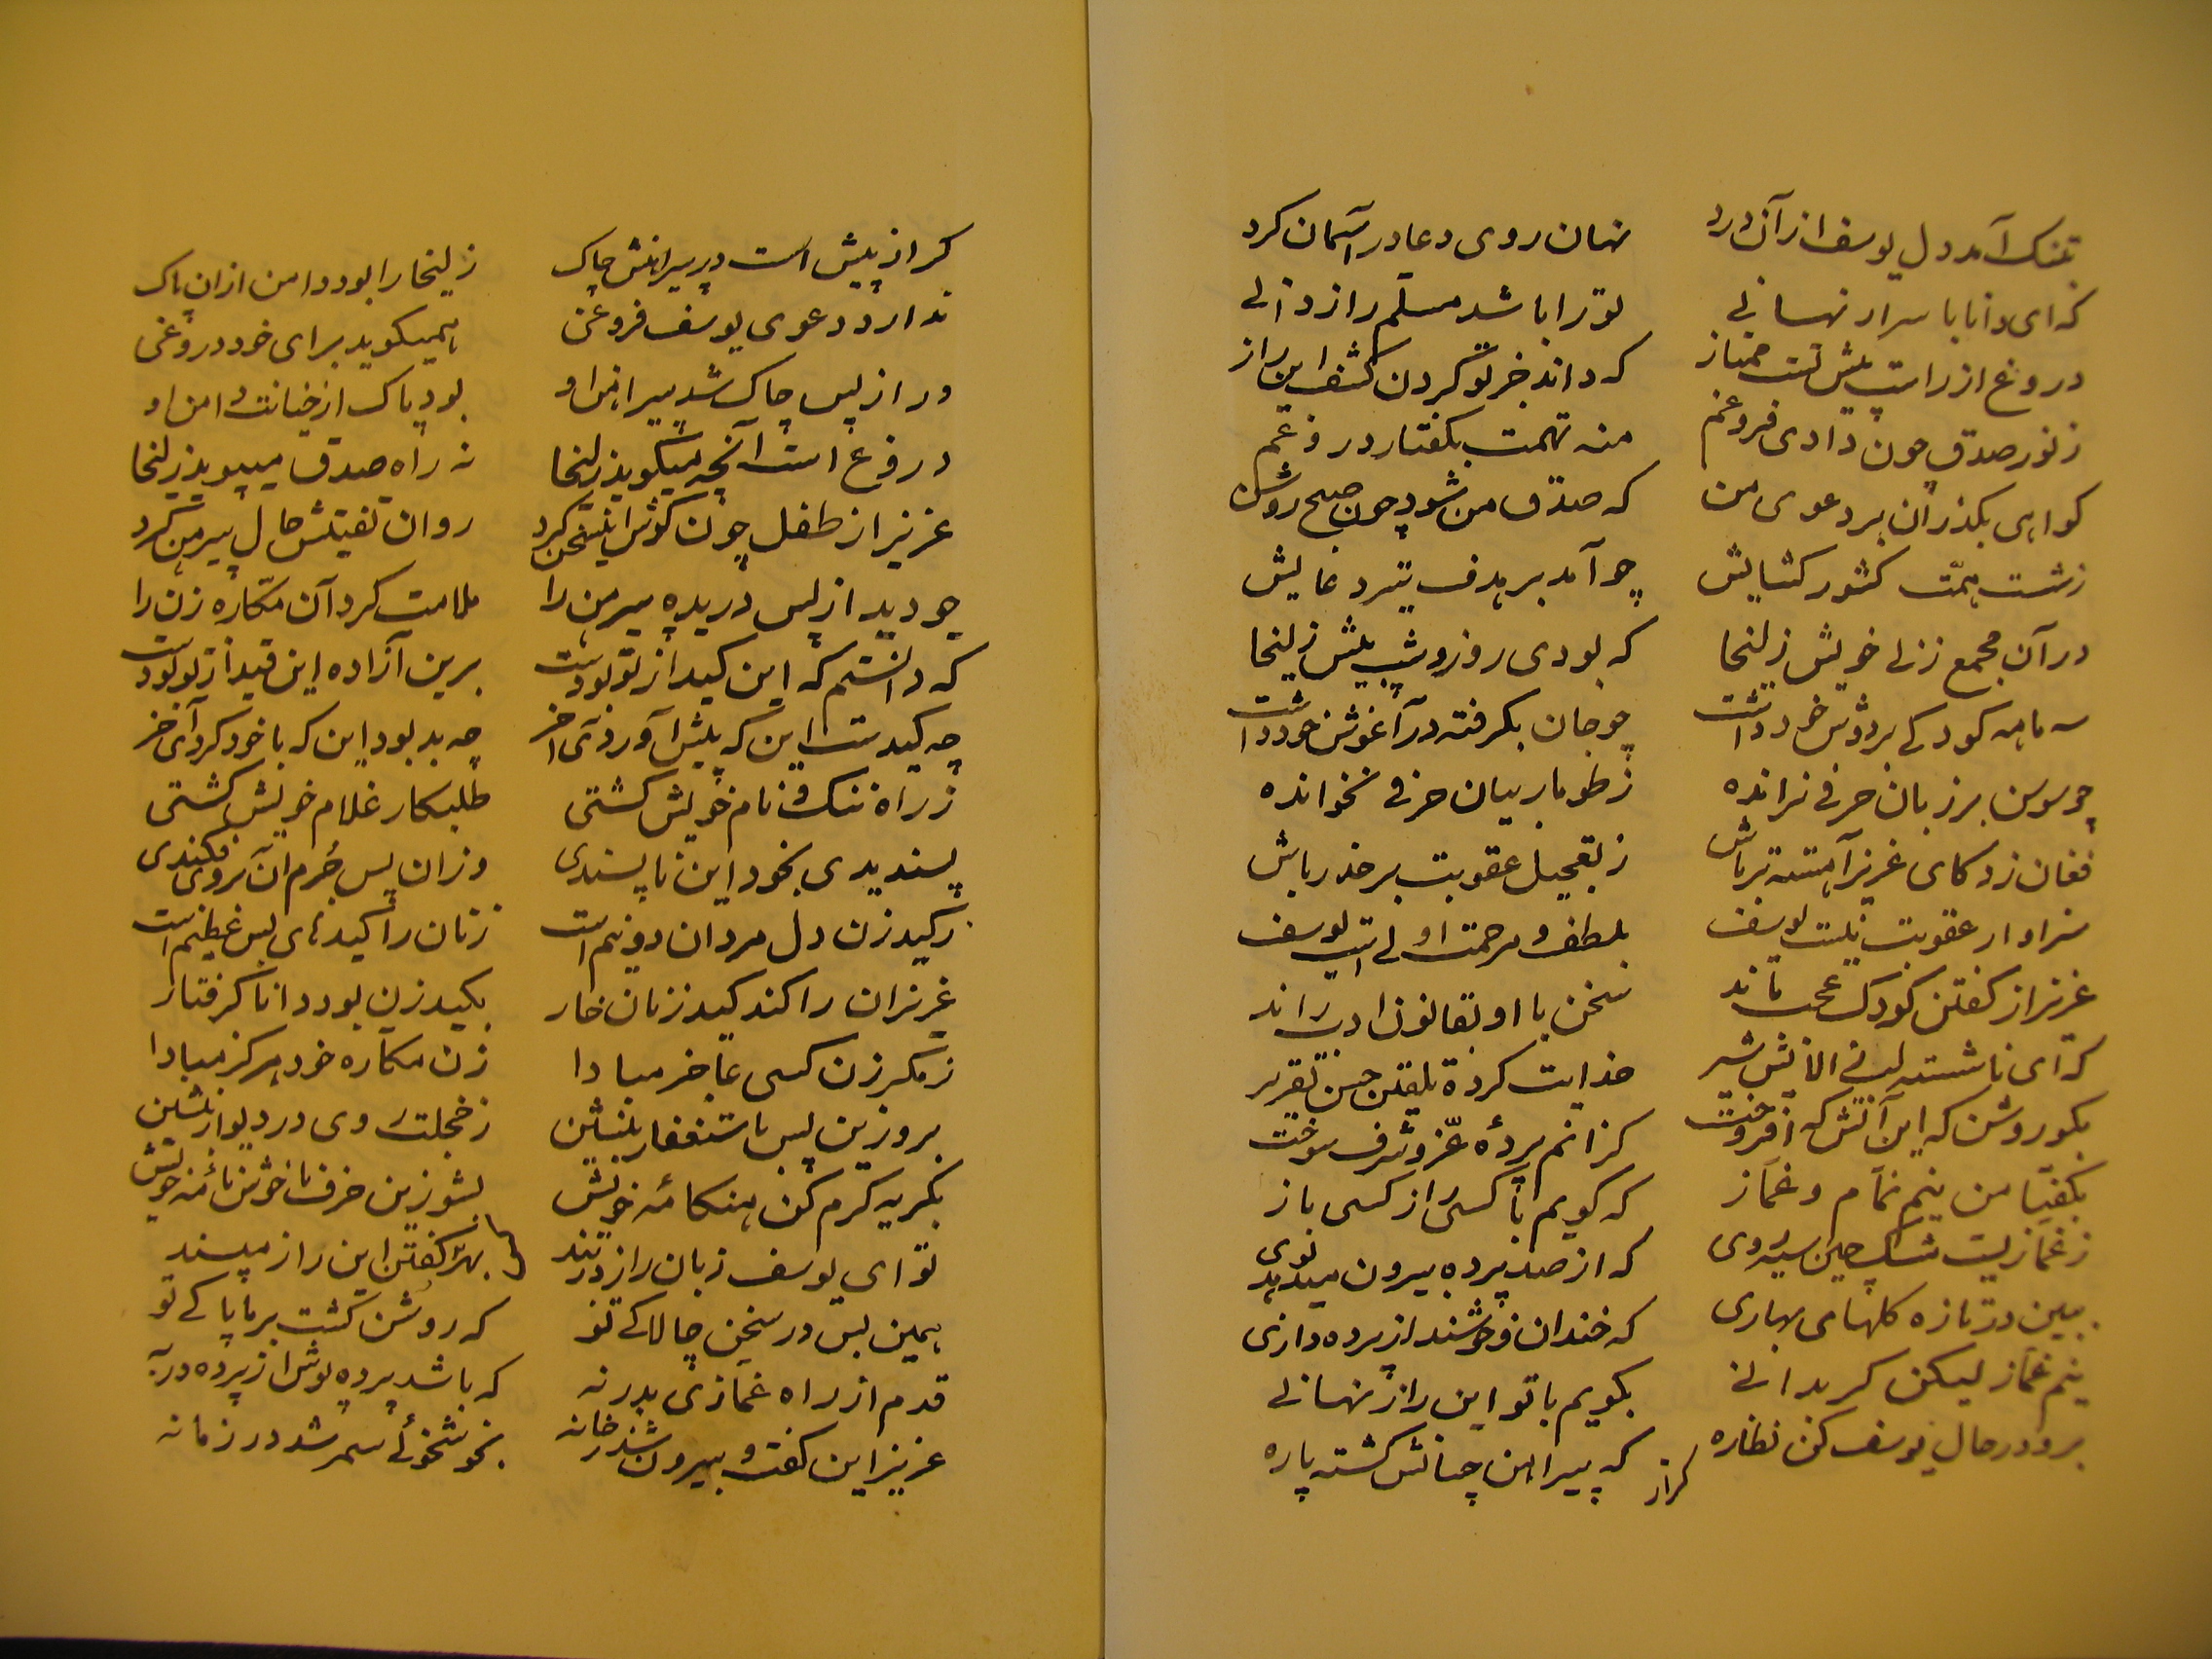 بتنک آمد دل یوسف ازآن درد
نهان روی دعا در آسمان کرد
که ای دانا باسرار نهانی
تو را باشد مسلّم راز دانی
دروغ از راست پیش تست ممتاز
که داند جز تو کردن کشف این راز
ز نور صدق چون دادی فروغم
منه تهمت بکفتار دروغم
کواهی بکذران بر دعوی من
که صدق من شود چون صبح روشن
ز شست همّت کشور کشایش
چو آمد بر هدف تیر دعایش
در آن مجمع زنی خویش زلیخا
که بودی روز و شب پیش زلیخا
سه ماهه کودکی بر دوش خود داشت
چو جان بکرفته در آغوش خود داشت
چو سوسن بر زبان حرفی نرانده
ز طومار بیان حرفی نخوانده
فغان زد کای عزیز آهسته تر باش
ز تعجیل عقوبت بر حذر باش
سزاوار عقوبت نیست یوسف
بلطف و مرحمت اولی است یوسف
عزیز از کفتن کودک عجب ماند
سخن با او بقانون ادب راند
که ای ناشسته لب ز الایش شیر
خدایت کرده تلقین حسن تقریر
بکو روشن که این آتش که افروخت
کزانم پردهٔ عّز و شرف سوخت
بکفتا من نیم نمّام و غمّاز
که کویم با کسی راز کسی باز
ز غمّازیست مشک چین سیه روی
که از صد پرده بیرون میدهد بوی
ببین در تازه کلهای بهاری
که خندان و خوشند از پرده داری
نیم غمّاز لیکن کر بدانی
بکویم با تو این راز نهانی
برو در حال یوسف کن نظاره
که پیراهن چنانش کشته پاره
کراز
کر از پیش است در پیراهنش چاک
زلیخا را بود دامن ازان پاک
ندارد دعوی یوسف فروغی
همیکوید برای خود دروغی
ور از پس چاک شد پیراهن او
بود پاک از خیانت دامن او
دروغ است آنچه میکوید زلیخا
نه راه صدق میپوید زلیخا
عزیز از طفل چون کوش این سخن کرد
روان تفتیش حال پیرهن کرد
چو دید از پس دریده پیرهن را
ملامت کرد آن مکّاره زن را
که دانستم که این کید از تو بودست
برین آزاده این قید از تو بودست
چه کید است این که پیش آوردی آخر
چه بد بود این که با خود کردی آخر
ز راه ننک و نام خویش کشتی
طلبکار غلام خویش کشتی
پسندیدی بخود این ناپسندی
وزان پس جُرم آن بروی فکندی
ز کید زن دل مردان دونیم است
زنان را کیدهای بس عظیم است
عزیزان را کند کید زنان خوار
بکید زن بود دانا کرفتار
ز مکر زن کسی عاجز مبادا
زن مکّاره خود هرکز مبادا
برو زین پس باستغفار بنشین
ز خجلت روی در دیوار بنشین
بکریه کرم کن هنکامهٔ خویش
بشو زین حرف ناخوش نامهٔ خویش
تو ای یوسف زبان زین راز در بند
بهر کس کفتن این راز مپسند
همین بس در سخن چالاکی تو
که روشن کشت بر ما پاکی تو
قدم از راه غمّازی بدر نه
که باشد پرده پوش از پرده در به
عزیز این کفت و بیرون شد ز خانه
بخوشخوئی سمر شد در زمانه